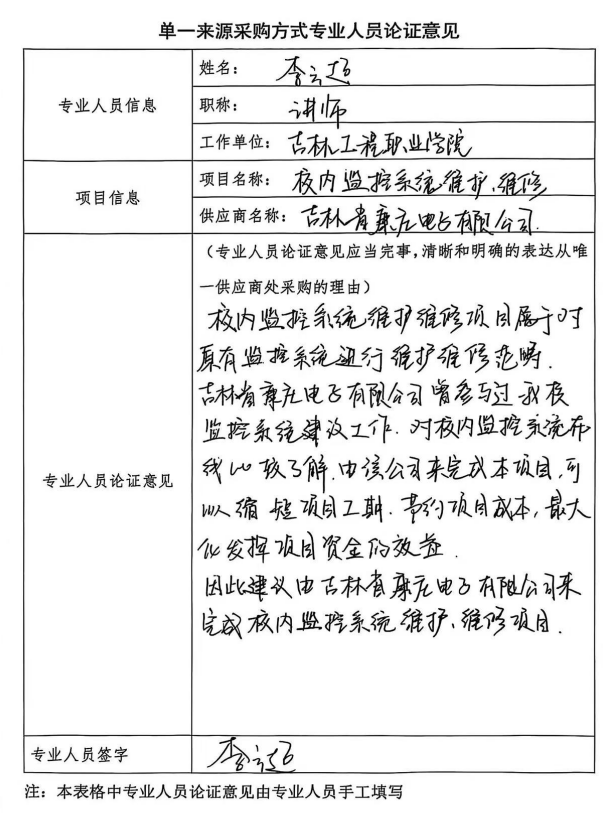 单一来源采购方式专业人员论证意见
专业人员信息
姓名： 李云超
职称： 讲师
工作单位： 吉林工程职业学院
项目信息
项目名称： 校内监控系统维护、维修
供应商名称： 吉林省康庄电子有限公司.
专业人员论证意见
（专业人员论证意见应当完事，清晰和明确的表达从唯
一供应商处采购的理由）
校内监控系统维护维修项目属于对
原有监控系统进行维护维修范畴.
吉林省康庄电子有限公司曾参与过我校
监控系统建设工作.对校内监控系统布
线比较了解.由该公司来完成本项目,可
以缩短项目工期.节约项目成本,最大
化发挥项目资金的效益.
因此建议由吉林省康庄电子有限公司来
完成校内监控系统维护、维修项目.
专业人员签字 李云超
注：本表格中专业人员论证意见由专业人员手工填写